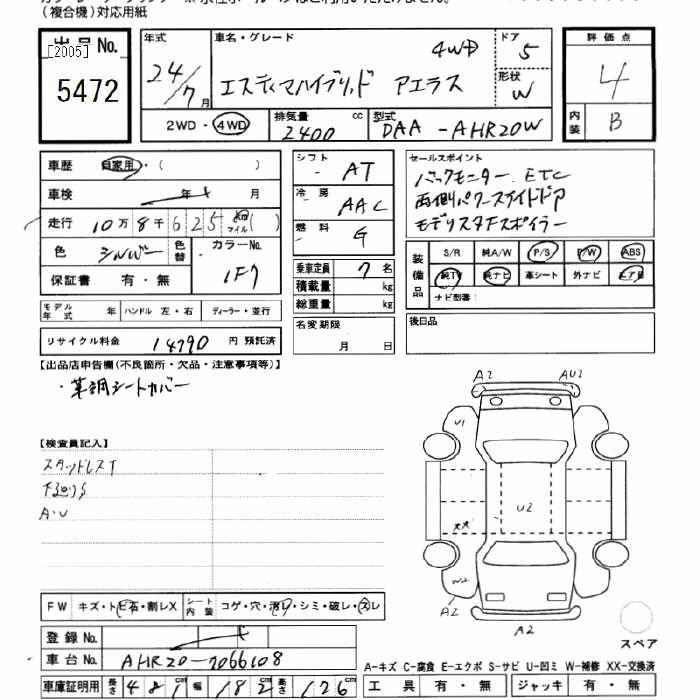 (複合機)対応用紙
出品No.
[2005]
5472
年式
24/7月
車名・グレード
4WD
エスティマハイブリッド アエラス
ドア
5
形状
W
評価点
4
内装
B
2WD・4WD
排気量
2400 cc
型式
DAA-AHR20W
車歴 自家用・( )
車検 年 月
走行 10万8千625 km マイル( )
色 シルバー 色替 カラーNo. 1F7
保証書 有・無
モデル年式 年 ハンドル 左・右 ディーラー・並行
リサイクル料金 14790 円 預託済
シフト AT
冷房 AAC
燃料 G
乗車定員 7 名
積載量 kg
総重量 kg
名変期限
月 日
セールスポイント
バックモニター ETC
両側パワースライドドア
モデリスタFスポイラー
装備品
S/R 純A/W P/S P/W ABS
純TV 純ナビ 革シート 外ナビ エアB
ナビ型番:
後日品
【出品店申告欄(不良箇所・欠品・注意事項等)】
・革調シートカバー
【検査員記入】
スタッドレスT
下廻りS
A・U
FW キズ・トビ石・割レX シート内装 コゲ・穴・汚レ・シミ・破レ・スレ
登録No.
車台No. AHR20-7066108
車庫証明用 長さ 481cm 幅 182cm 高さ 176cm
A2 AU2
U1
U2
W2
A2
A2
スペア
A-キズ C-腐食 E-エクボ S-サビ U-凹ミ W-補修 XX-交換済
工具 有・無 ジャッキ 有・無